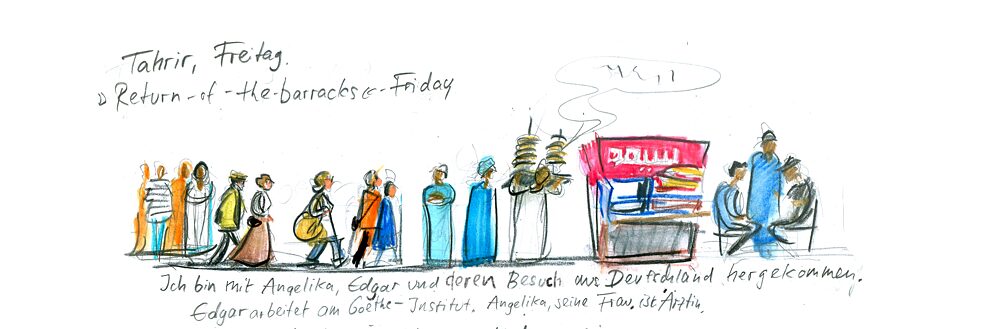 Tahrir, Freitag.
»Return-of-the-barracks«-Friday
Ich bin mit Angelika, Edgar und deren Besuch aus Deutschland hergekommen.
Edgar arbeitet am Goethe-Institut. Angelika, seine Frau, ist Ärztin.